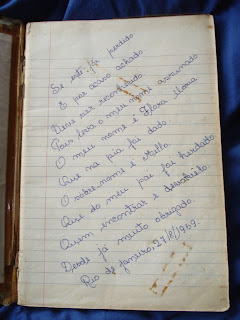 Se este foi perdido
E por acaso achado
Deve ser reconhecido
Pois leva o meu nome assinado
O meu nome é Flora Maria
Que na pia foi dado.
O sobre-nome é
Que do meu pai foi herdado.
Quem encontrar e descobrir
Desde já muito obrigado.
Rio de Janeiro, 27/8/1969.